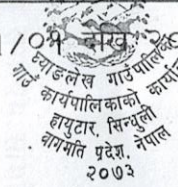 /०१ देखि २०
घ्याङलेख गाउँपालिका
गाउँ कार्यपालिकाको कार्या
हायुटार, सिन्धुली
वागमति प्रदेश, नेपाल
२०७३